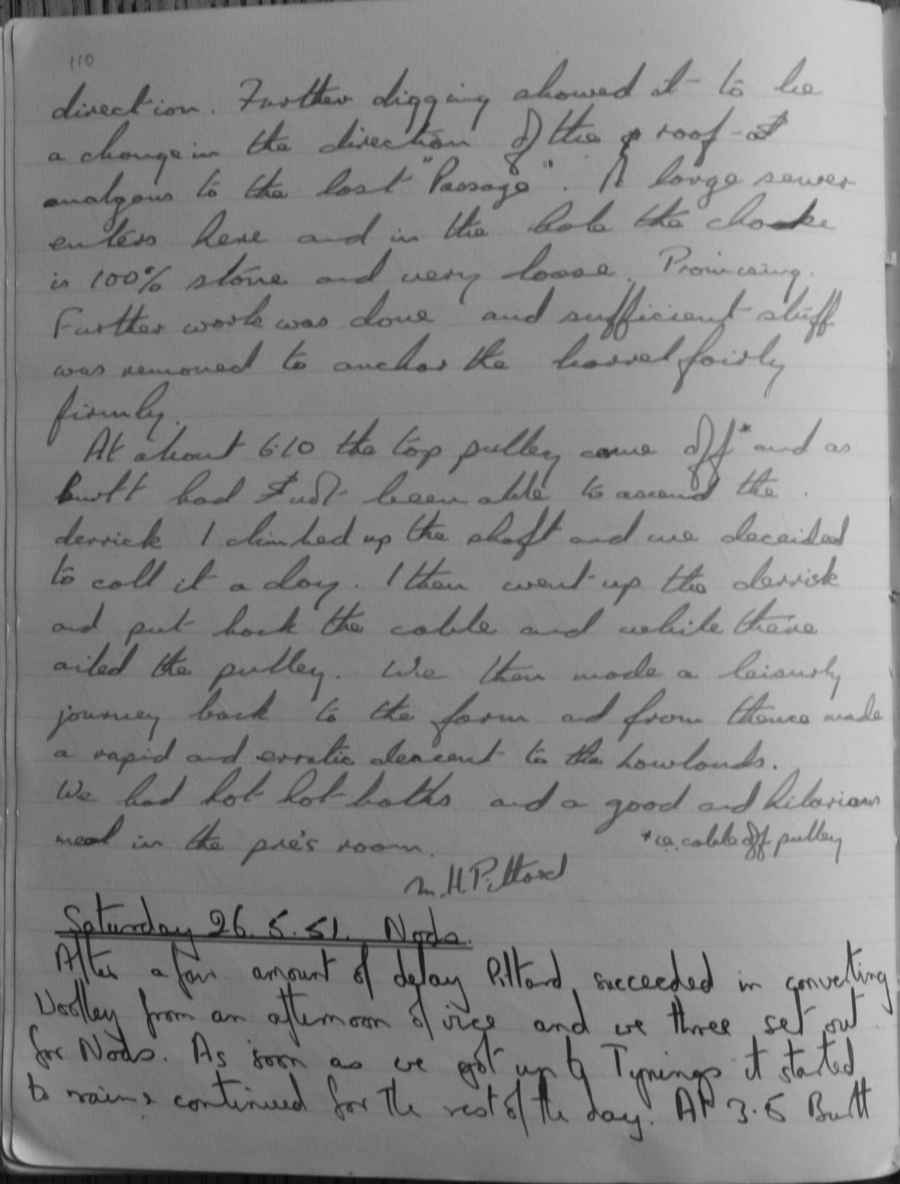 110
direction. Further digging showed it to be
a change in the direction of the roof -
analgous to the last "Passage". A large sewer
enters here and in the hole the choke
is 100% stone and very loose. Promiseing.
Further work was done and sufficient stuff
was removed to anchor the barrel fairly
firmly.
At about 6.10 the top pulley came off* and as
Butt had just been able to ascend the
derrick I climbed up the shaft and we deceided
to call it a day. I then went up the derrick
and put back the cable and while there
oiled the pulley. We then made a leisurly
journey back to the farm and from thence made
a rapid and erratic descent to the lowlands.
We had hot hot baths and a good and hilarious
meal in the pre's room.
*ie. cable off pulley
M.H Pittard
Saturday 26.5.51. Nods.
After a fair amount of delay Pittard succeeded in converting
Woolley from an afternoon of vice and we three set out
for Nods. As soon as we got up to Tynings it started
to rain & continued for the rest of the day. At 3.5 Butt